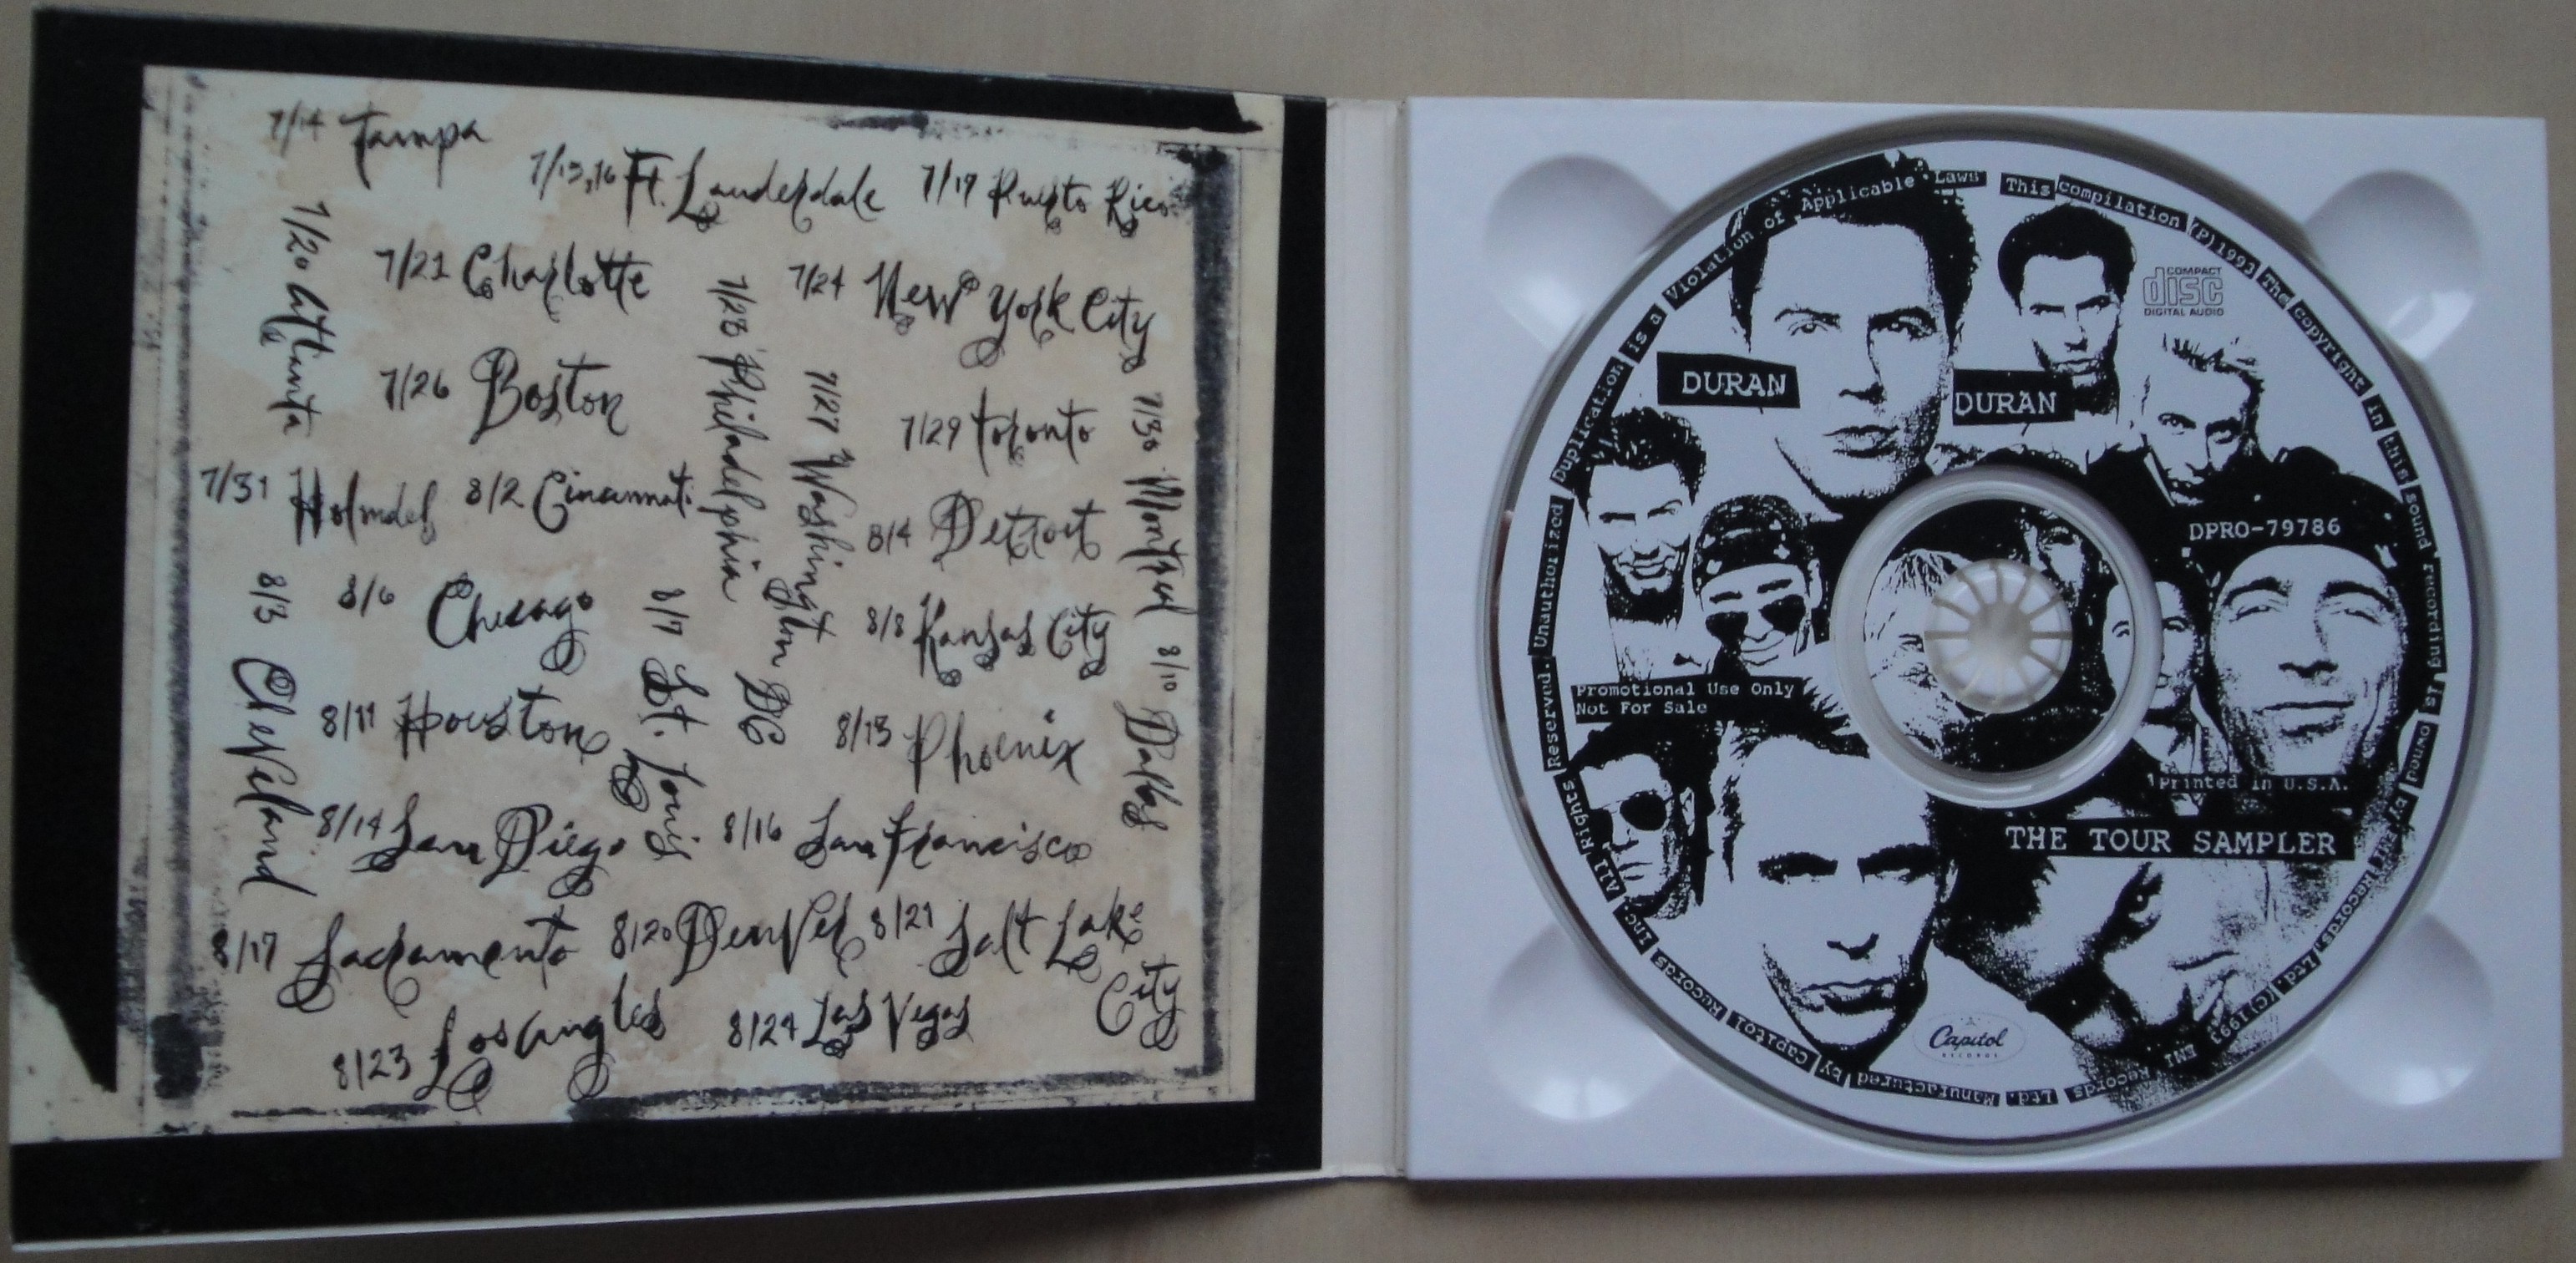 7/14 Tampa
7/15,16 Ft. Lauderdale
7/19 Puerto Rico
7/20 Atlanta
7/21 Charlotte
7/24 New York City
7/26 Boston
7/28 Philadelphia
7/27 Washington DC
7/29 Toronto
7/30 Montreal
7/31 Holmdel
8/2 Cincannati
8/4 Detroit
8/3 Cleveland
8/6 Chicago
8/7 St. Louis
8/8 Kansas City
8/10 Dallas
8/11 Houston
8/13 Phoenix
8/14 San Diego
8/16 San Francisco
8/17 Sacramento
8/20 Denver
8/21 Salt Lake
City
8/23 Los Angles
8/24 Las Vegas
DURAN
DURAN
COMPACT
disc
DIGITAL AUDIO
DPRO-79786
Promotional Use Only
Not For Sale
Printed in U.S.A.
THE TOUR SAMPLER
Capitol
RECORDS
This compilation (P)1993 The copyright in this sound recording is owned by EMI Records Ltd. (C)1993 EMI Records Ltd. Manufactured by Capitol Records Inc. All Rights Reserved. Unauthorized Duplication is a Violation of Applicable Laws